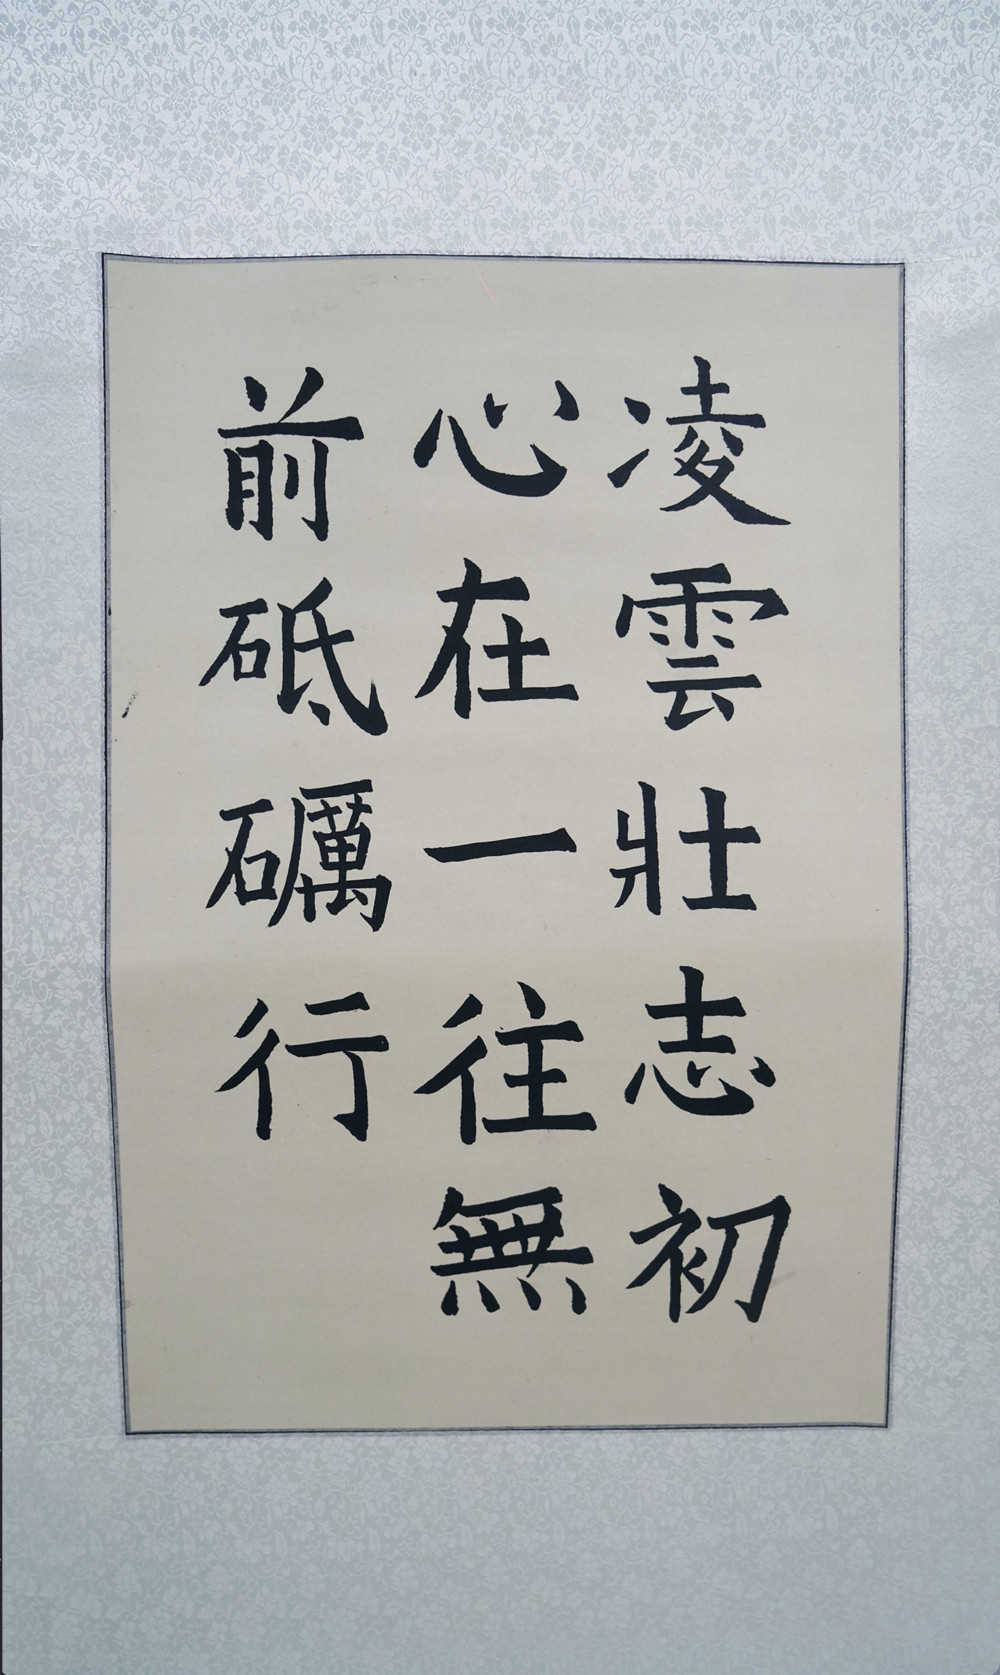 凌雲壯志初
心在一往無
前砥礪行